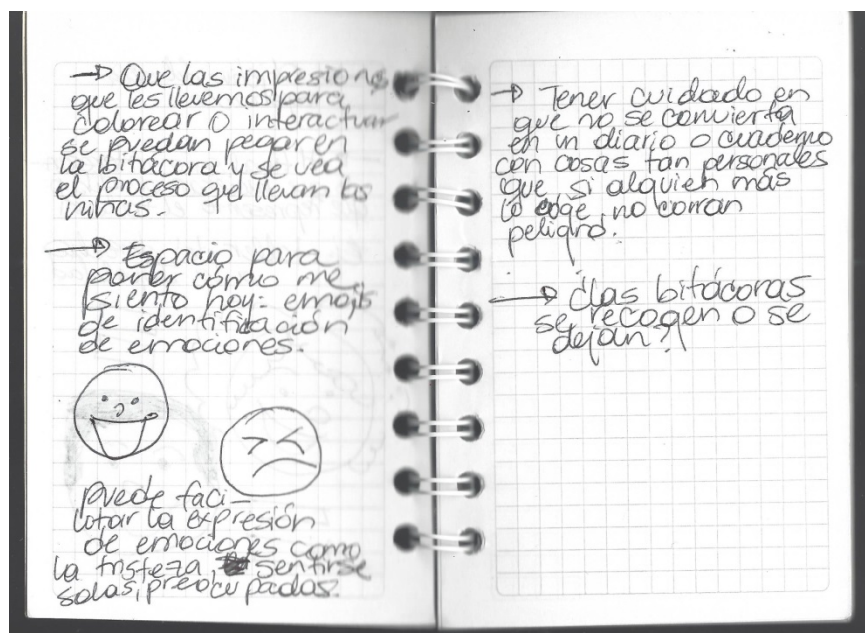 → Que las impresiones
que les llevemos para
colorear o interactuar
se puedan pegar en
la bitácora y se vea
el proceso que llevan las
niñas.
→ Espacio para
poner cómo me
siento hoy: emojis
de identificación
de emociones.
puede faci-
litar la expresión
de emociones como
la tristeza, sentirse
solas, preocupadas.
→ Tener cuidado en
que no se convierta
en un diario o cuaderno
con cosas tan personales
que si alguien más
lo coge no corran
peligro.
→ ¿Las bitácoras
se recogen o se
dejan?